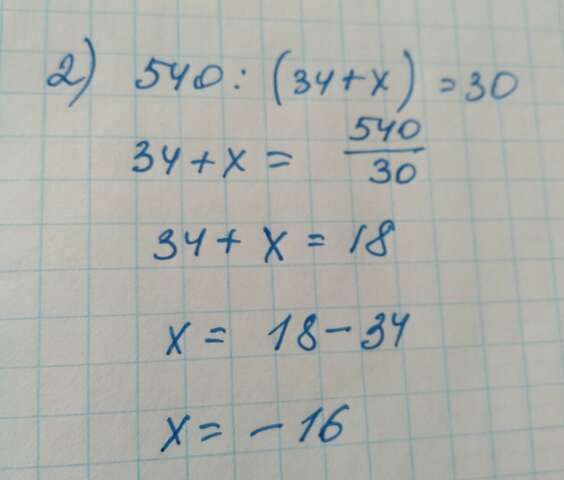 2) 540 : (34 + x) = 30
34 + x = 540/30
34 + x = 18
x = 18 - 34
x = - 16